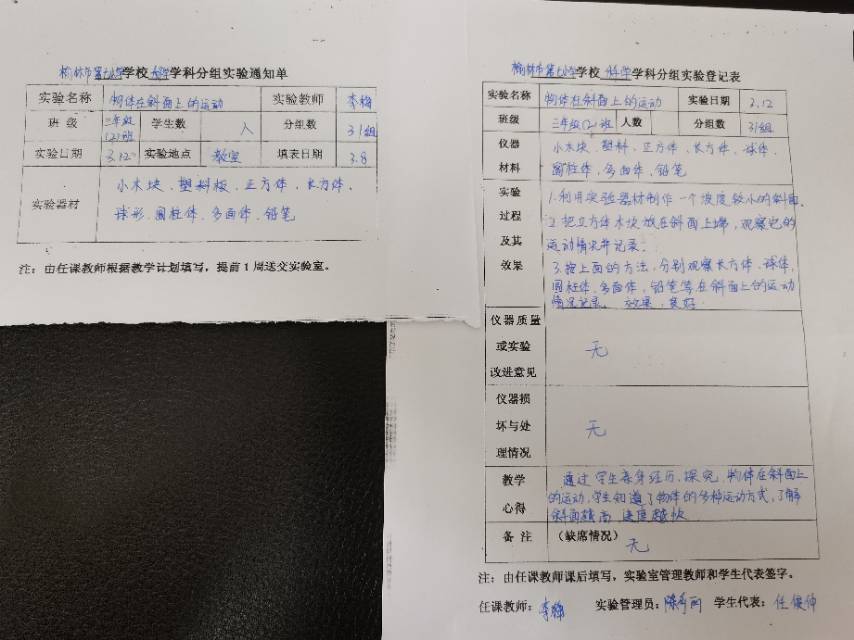 榆林市第七小学学校 科学 学科分组实验通知单
实验名称 物体在斜面上的运动 实验教师 李梅
班 级 三年级(2)班 学生数 人 分组数 31组
实验日期 3.12 实验地点 教室 填表日期 3.8
实验器材 小木块、塑料板、正方体、长方体、
球形、圆柱体、多面体、铅笔
注：由任课教师根据教学计划填写，提前1周送交实验室。
榆林市第七小学学校 科学 学科分组实验登记表
实验名称 物体在斜面上的运动 实验日期 3.12
班级 三年级(2)班 人数 分组数 31组
仪器材料 小木块、塑料、正方体、长方体、球体、
圆柱体、多面体、铅笔
实验过程及其效果 1.利用实验器材制作一个坡度较小的斜面。
2.把立方体木块放在斜面上端，观察它的
运动情况并记录。
3.按上面的方法，分别观察长方体、球体，
圆柱体、多面体，铅笔等在斜面上的运动
情况记录。 效果：良好.
仪器质量或实验改进意见 无
仪器损坏与处理情况 无
教学心得 通过学生亲身经历、探究，物体在斜面上
的运动，学生知道了物体的多种运动方式，了解
斜面越高 速度越快
备 注 （缺席情况） 无
注：由任课教师课后填写，实验室管理教师和学生代表签字。
任课教师：李梅 实验管理员： 学生代表：任俊伸